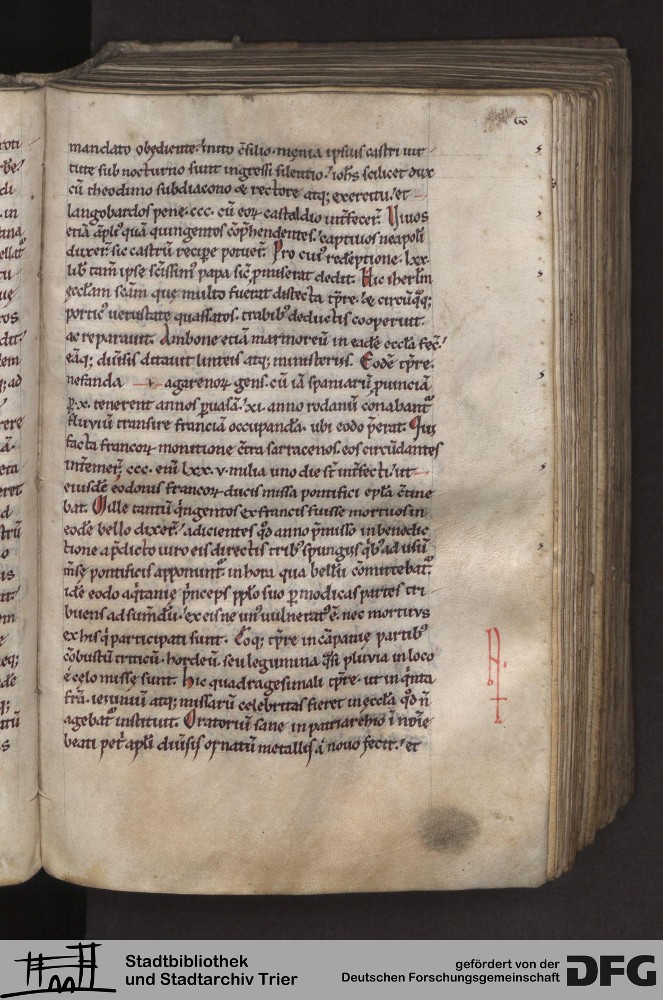 mandato obędiente. inito c̄silio. męnia ipsius castri uir
tute sub nocturno sunt ingressi silentio. ioh̄s scilicet dux
cū theodimo subdiacono & rectore atq; exercitu. et
langobardos pene .ccc. cū eoꝝ castaldio int̄fecer̄. Viuos
etiā ápl' quā quingentos cōp̄hendentes. captiuos neapolī
duxer̄. sic castrū recipe potuer̄. Pro cui' redēptione .lxx.
lib' tam̄ ipse sc̄issim' papa sic ꝓmiserat dedit. Hic iherl̄m
ęccl̄am sc̄am que multo fuerat distecta tp̄re. & circūq̄q;
portic' uetustate quassatos. trabib' deductis cooperuit.
ac reparauit. Ambone etiā marmoreū in eadē eccl̄a fec̄.
eāq; diu̇sis ditauit linteis atq; ministeriis. Eodē tp̄re.
nefanda agarenoꝝ gens. cū iā spaniarū ꝓuinciā
ꝑ .x. tenerent annos ꝑuasā. xi. anno rodanū conabant'
fluuiū transire franciā occupanda. ubi eodo p̄erat. Qui
facta francoꝝ monitione c̄tra sarracenos. eos circūdantes
int̄emer̄. ccc. eni̅ lxx. v. milia uno die s̄t int̄fecti. ut
eiusdē eodonis francoꝝ ducis missa pontifici ep̄la c̄tine
bat. Mille tantū q̇ngentos ex francis fuisse mortuos in
eodē bello dixer̄. adicientes q̊o anno p̄misso in benedic
tione a p̄dicto uiro eis directis trib' spungiis q̇b' ad usū
m̄sę pontificis apponunt'. in hora qua bellū cōmittebat'.
idē eodo aq̇tanię ṗnceps ppl̄o suo ꝑ modicas partes tri
buens ad sum̄du̇. ex eis ne un' uulnerat' ē. nec mortuus
ex his q̇ participati sunt. Eoq; tp̄re in cāpanię partib'
cōbustū triticū. hordeū. seu legumina q̄si pluuia in loco
ē celo missę sunt. Hic quadragesimali tp̄re. ut in q̇nta
fr̄a. ieiuniū atq; missarū celebritas fieret in eccl̄a q̊d n̄
agebat' instituit. Oratoriū sane in patriarchio ī nōīe
beati petri ap̄li diu̇sis ornatū metallis ā nouo fecit. et
Stadtbibliothek
und Stadtarchiv Trier
gefördert von der
Deutschen Forschungsgemeinschaft
DFG